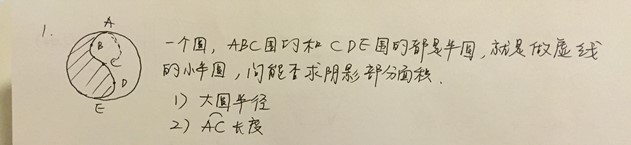 1.
A
B
C
D
E
一个圆，ABC围的和CDE围的都是半圆，就是做虚线
的小半圆，问能否求阴影部分面积．
1) 大圆半径
2) AC长度